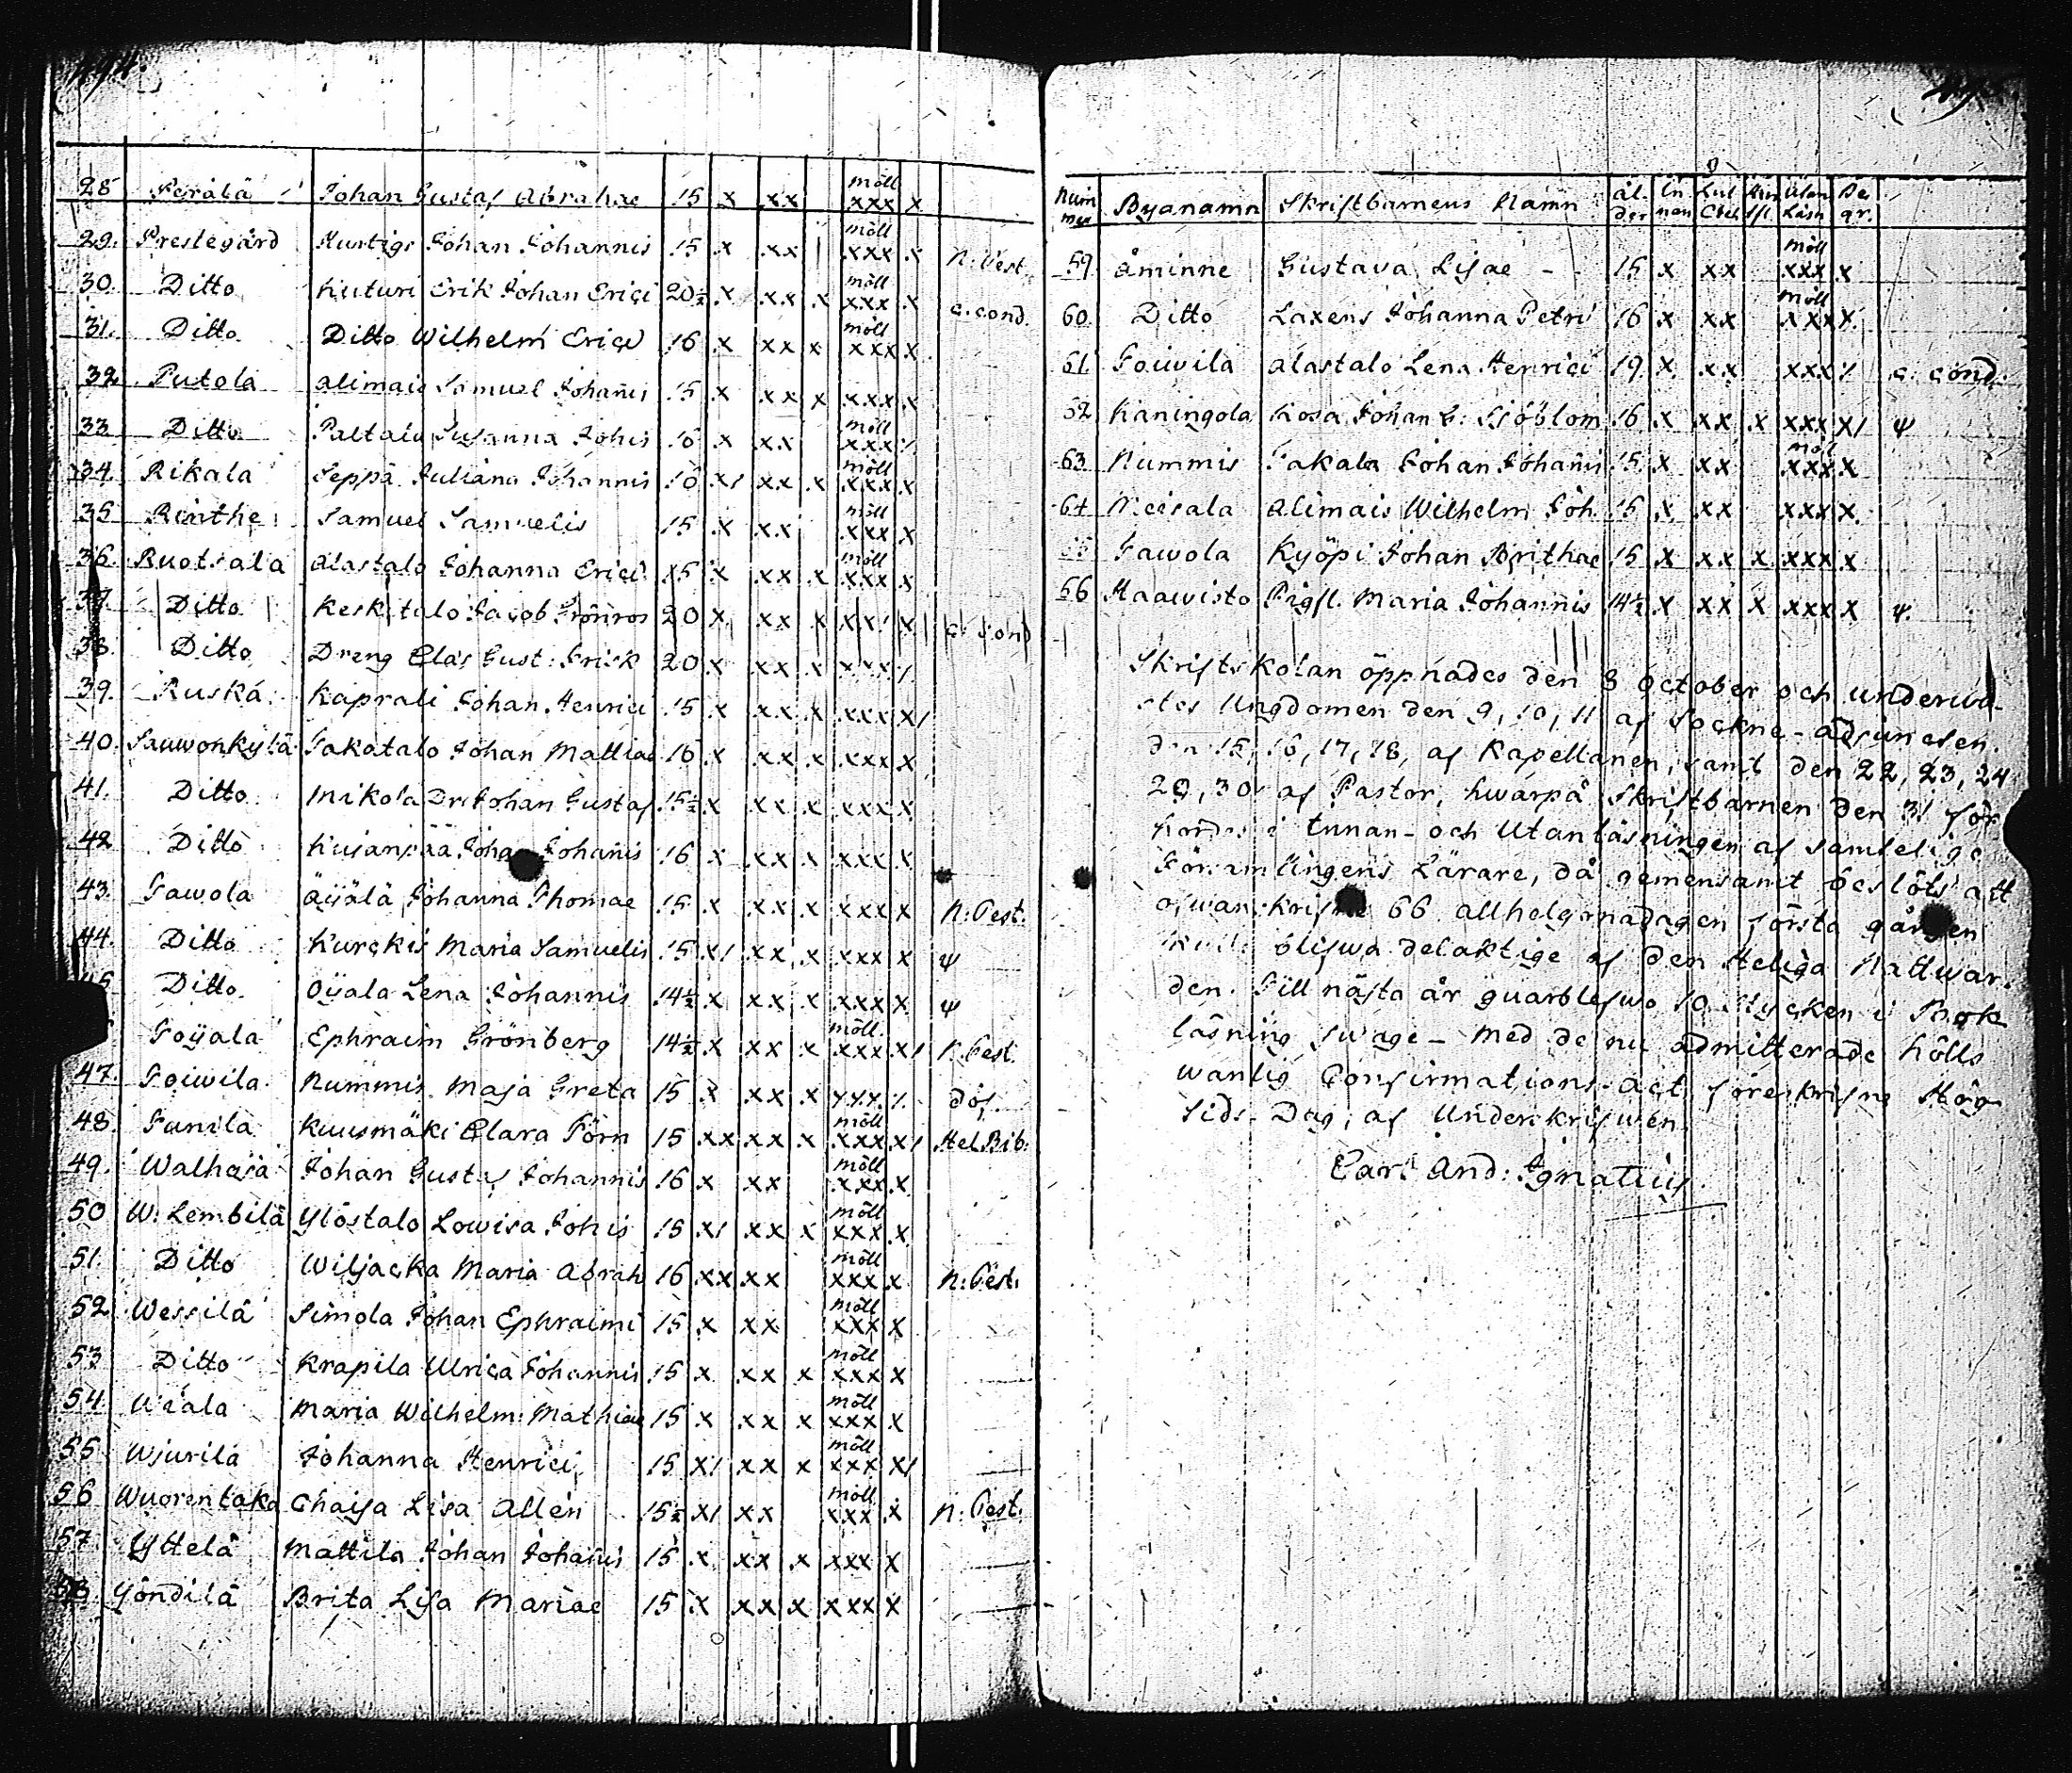 28 Perälä Johan Gustaf Abrahae 15 x xx möll xxx x
29. Prestegård Hurtigs Johan Johannis 15 x xx möll xxx x N: Test.
30. Ditto Kuturi Erik Johan Erici 20½ x xx x möll xxx x c. cond.
31. Ditto Ditto Wilhelm Erici 16 x xx x möll xxx x
32 Putola Alimais Samuel Johañis 15 x xx x xxx x
33 Ditto Paltala Susanna Johis 16 x xx möll xxx x
34. Rikala Seppä Juliana Johannis 16 x/ xx x möll xxx x
35 Rinthe Samuel Samuelis 15 x xx möll xxx x
36. Ruotsala Alastalo Johanna Erici 15 x xx x möll xxx x
37. Ditto Keskitalo Jacob Grönros 20 x xx x xxx x c: cond
38. Ditto Dreng Elas Gust: Frisk 20 x xx x xxx x
39. Ruska Kaprali Johan Henrici 15 x xx x xxx x/
40. Sauwonkylä Takatalo Johan Mattiae 16 x xx x xxx x
41. Ditto Mikola Dr: Johan Gustaf 15½ x xx x xxx x
42 Ditto Kujanpää Johan Johañis 16 x xx x xxx x
43. Tawola Äijälä Johanna Thomae 15 x xx x xxx x N: Test.
44. Ditto Kurckis Maria Samuelis 15 x/ xx x xxx x ψ
45 Ditto Oijala Lena Johannis 14½ x xx x xxx x ψ
Toijala Ephraim Grönberg 14½ x xx x möll xxx x/ N. Test.
47. Toiwila Nummis Maja Greta 15 x xx x xxx x döf.
48. Tunila Kuusmäki Clara Törn 15 xx xx x möll xxx x/ Hel. Bib.
49. Walhoja Johan Gustaf Johannis 16 x xx möll xxx x
50 W. Lembilä Ylöstalo Lowisa Johis 15 x/ xx x möll xxx x
51. Ditto Wiljacka Maria Abrah 16 xx xx möll xxx x N: Test.
52 Wessilä Simola Johan Ephraimi 15 x xx möll xxx x
53 Ditto Krapila Ulrica Johannis 15 x xx x möll xxx x
54 Wiala Maria Wilhelm: Mathiae 15 x xx x möll xxx x
55 Wjurila Johanna Henrici 15 x/ xx x möll xxx x/
56 Wuorentaka Chaisa Lisa Allén 15½ x/ xx möll xxx x N: Test.
57 Yttelä Mattila Johan Johañis 15 x xx x xxx x
58 Yöndilä Brita Lisa Mariae 15 x xx x xxx x
Num mer Byanamn Skriftbarnens Namn Ål. der In nan Lut Ctek Utan Läsn Be gr.
59 Åminne Gustava Lisae - 15 x xx möll xxx x
60 Ditto Laxens Johanna Petri 16 x xx möll xxx x
61 Toiwila Alastalo Lena Henrici 19 x xx xxx x c: cond.
62 Kaningola Kosa Johan G: Sjöblom 16 x xx x xxx x/ ψ
63 Nummis Takala Johan Johañis 15 x xx möll xxx x
64 Meisala Alimais Wilhelm Joh 15 x xx xxx x
65 Tawola Kyöpi Johan Brithae 15 x xx x xxx x
66 Haawisto Pigfl. Maria Johannis 14½ x xx x xxx x ψ
Skriftskolan öppnades den 8 October och underwi-
stes Ungdomen den 9, 10, 11 af Sockne-adjuncten.
den 15, 16, 17, 18, af Kapellanen, samt den 22, 23, 24
29, 30 af Pastor, hwarpå Skriftbarnen den 31 för
hördes i Innan- och Utanläsningen af samtelige
Församlingens Lärare, då gemensamt beslöts att
ofwanskrifne 66 allhelgonadagen första gången
skulle blifwa delaktige af den Heliga Nattwar-
den. Till nästa år quarblefwo 10 stycken i Bok
läsning swage - Med de nu admitterade hölls
wanlig Confirmations-Act föreskrifne Hög-
tids-Dag, af Underskrifwen
Carl And: Ignatius